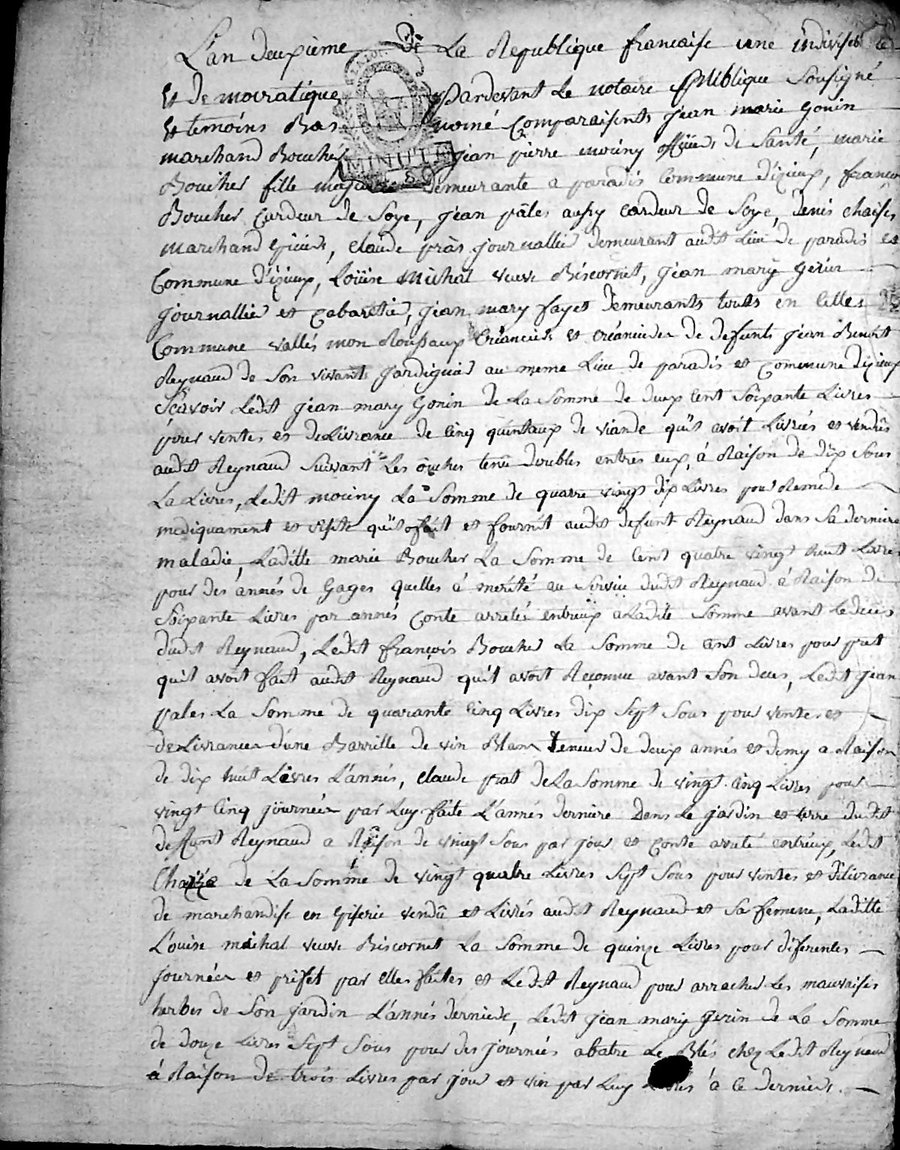 L'an deuxieme de La Republique francaise une indivisible
Et Democratique Pardevant Le notaire Publique Sousigné
Et temoins Bas nomé Comparaisents jean marie Gonin
marchand Boucher jean pierre mouiny officier de Santé, marie
Boucher fille majeure demeurante a paradis Commune d'izieux, francois
Boucher Cardeur de Soye, jean pâles aussy Cardeur de Soye, denis chaises
marchand Epicier, Claude pras journallier demeurant audit Lieu de paradis et
Commune d'izieux, Loüise Michal veuve Biscornet, jean mary Gerin
journallier et Cabaretier, jean mary fayet Demeurants touts en Celles
Commune vallés mon Roussaux Créanciers et Créancieres de defunts jean Benoit
Reynaud de Son vivant jardignier au meme Lieu de paradis et Commune d'izieux
Scavoir Ledit jean mary Gonin de La Somme de deux Cent Soixante Livres
pour ventes et deLivrance de Cinq quintaux de viande qu'il avoit Livrées et vendûs
audit Reynaud Suivant Les oches tenu doubles entres eux, á Raison de dix Sous
La Livres, Ledit mouiny La Somme de quatre vingt dix Livres pour Remede
mediquament et visite qu'il a fait et fournit audit defunt Reynaud dans Sa derniere
maladie, Ladille marie Boucher La Somme de Cent quatre vingt huit Livres
pour des annés de Gages quelles á merité au Service dudit Reynaud á Raison de
Soixante Livres par annés Conte arretés entreux a Ladite Somme avant Le deces
dudit Reynaud, Ledit françois Boucher La Somme de Cent Livres pour pret
qu'il avoit fait audit Reynaud qu'il avoit Reconnue avant Son deces, Ledit jean
pales La Somme de quarante Cinq Livres dix Sept Sous pour ventes et
deLivrances d'une Barrille de vin Blanc teneur de deux annés et demy a Raison
de dix huit Livres L'annés, Claude prat de La Somme de vingt Cinq Livres pour
vingt Cinq journées par Luy faite L'annés derniere Dans Le jardin et terre dudit
defunt Reynaud a Raison de vingt Sous par jour et Conte arreté entreux, Ledit
de La Somme de vingt quatre Livres Sept Sous pour ventes et deLivrance
de marchandise en Episerie vendû et Livrés audit Reynaud et Sa femme, Laditte
Louise michal veuve Biscornet La Somme de quinze Livres pour diferentes
journées et prifet par elles faites et Ledit Reynaud pour arracher Les mauvaises
herbes de Son jardin L'annés derniere, Ledit jean mary Gerin de La Somme
de douze Livres Sept Sous pour des journées abatre Le Blés chez Ledit Reynaud
á Raison de trois Livres par jour et vin par Luy á Ce dernier.
MINUTE